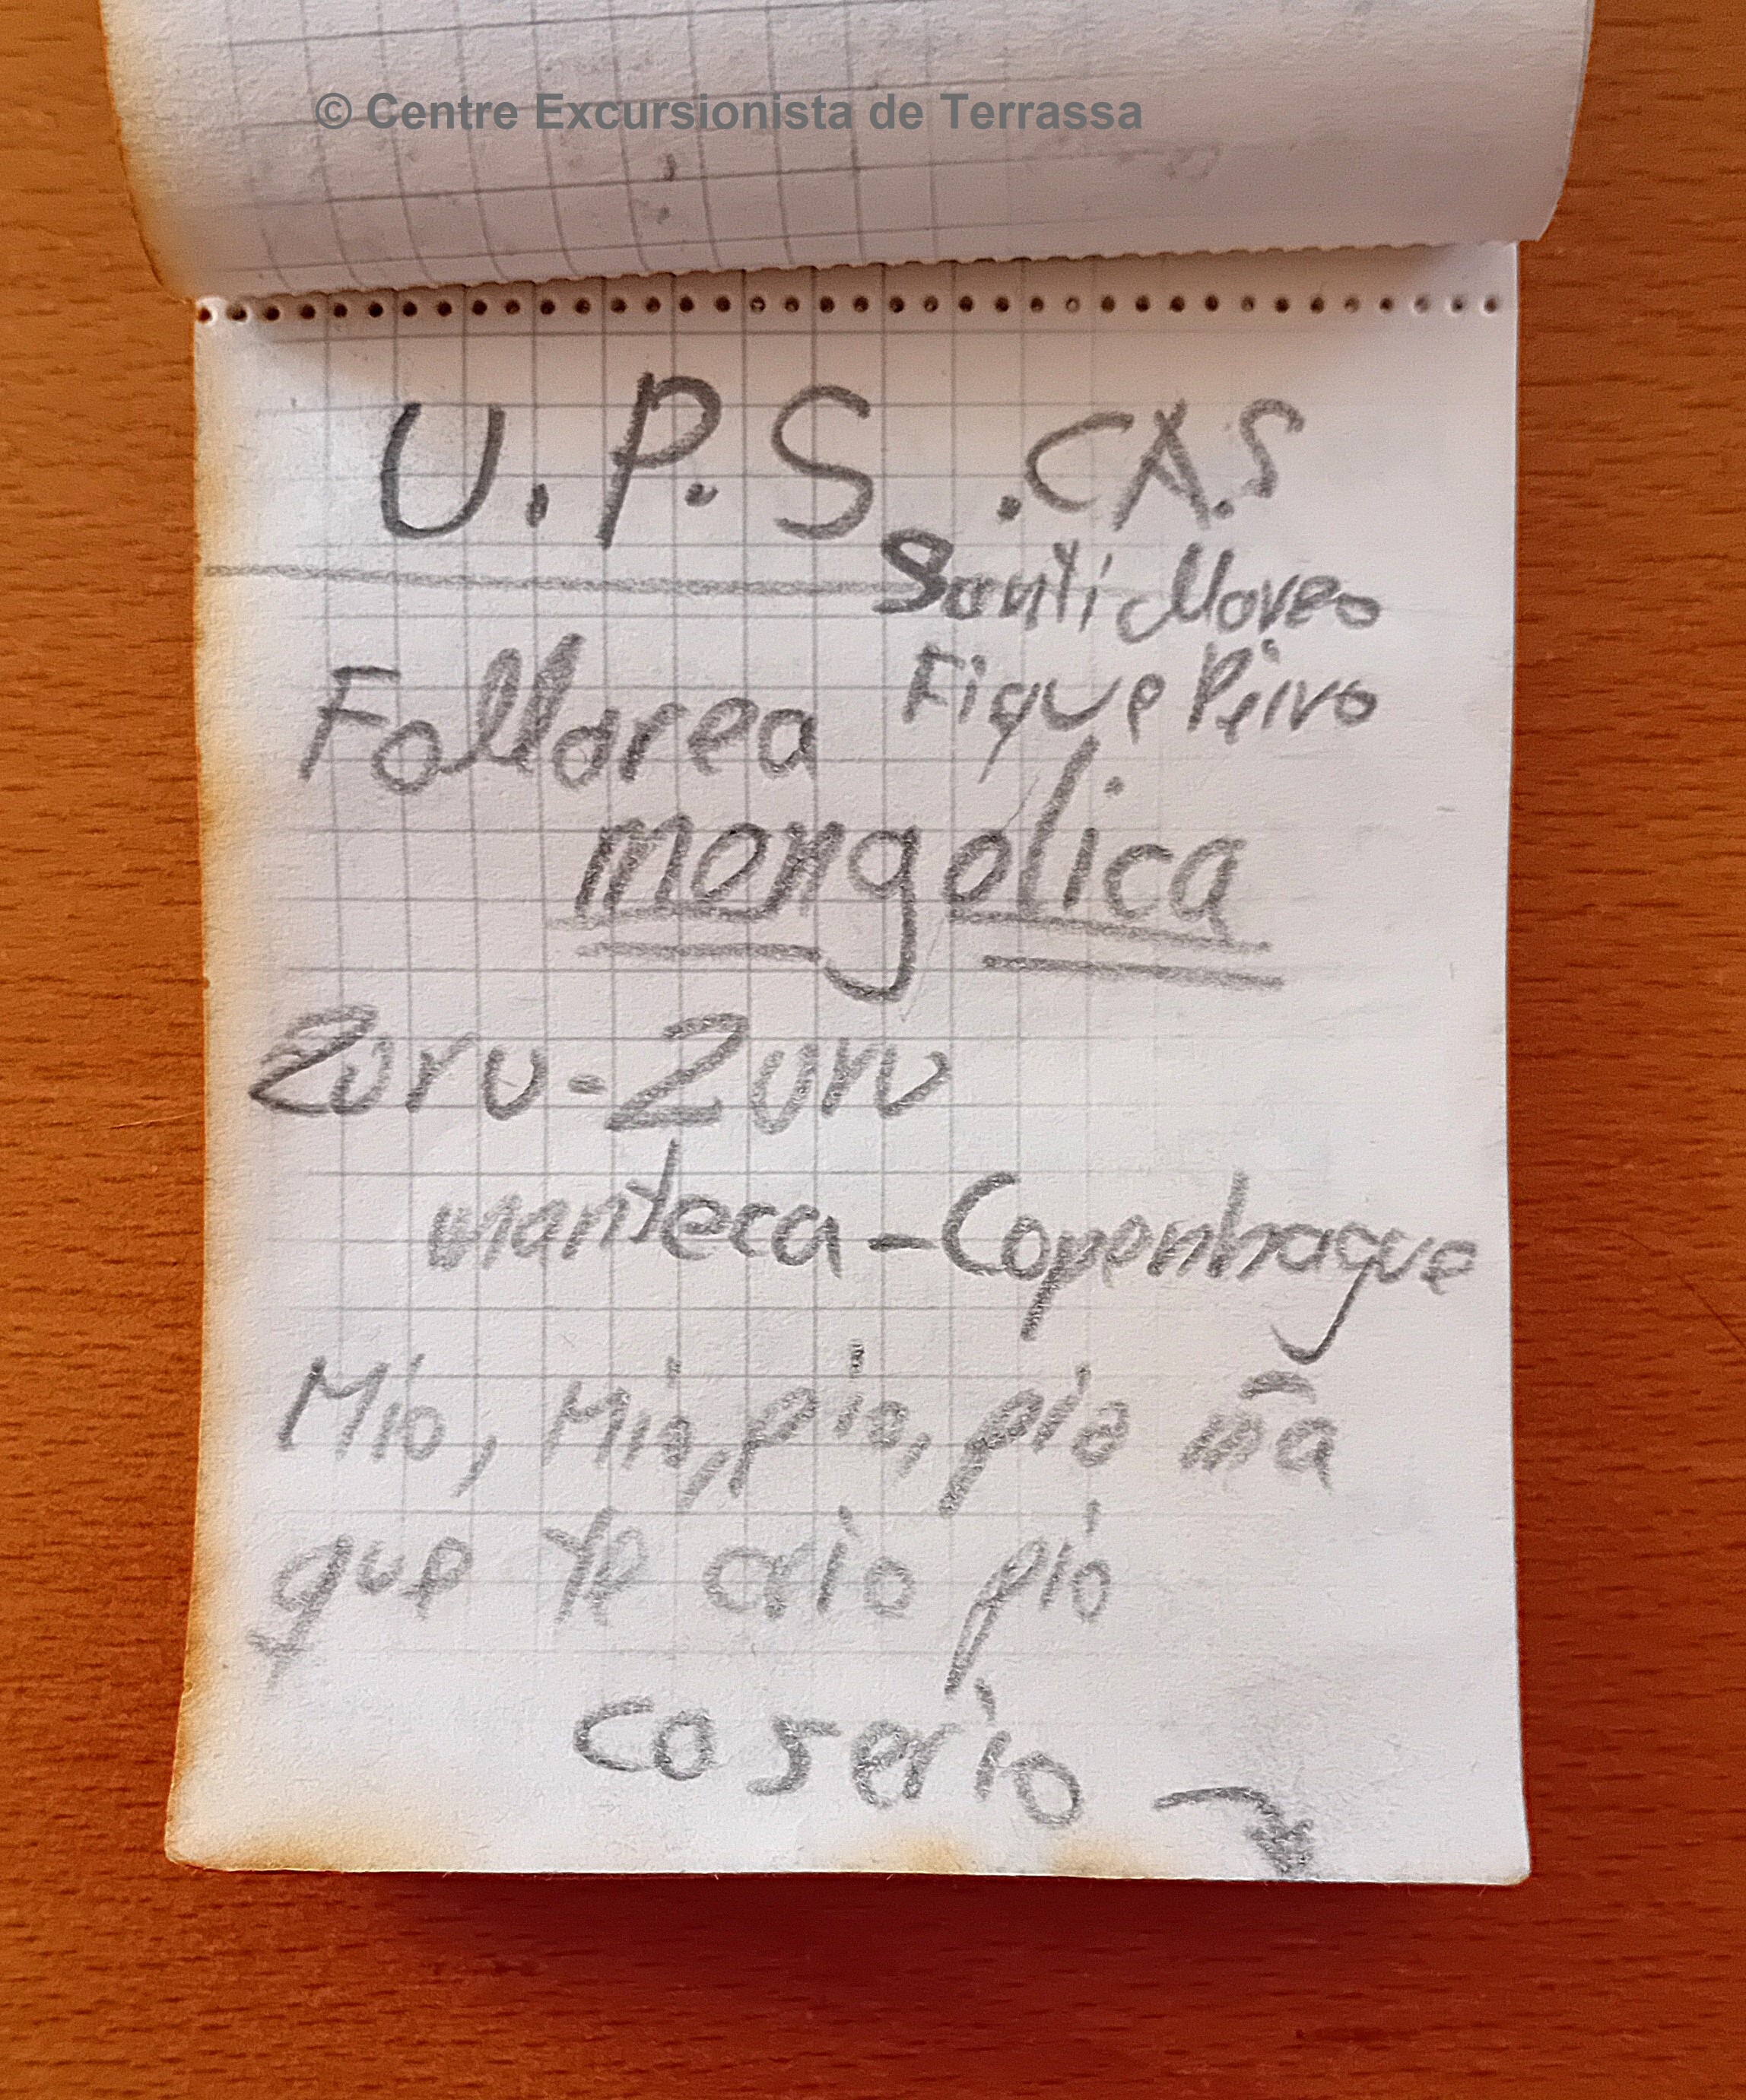 © Centre Excursionista de Terrassa
U.P.S. .CA.S
Santi Moreo
Fique Peiro
Follarea
mongólica
Zuru-Zuru
manteca - Copenhague
Mio, Mio, pio, pio ma
que te crio pio
caserio